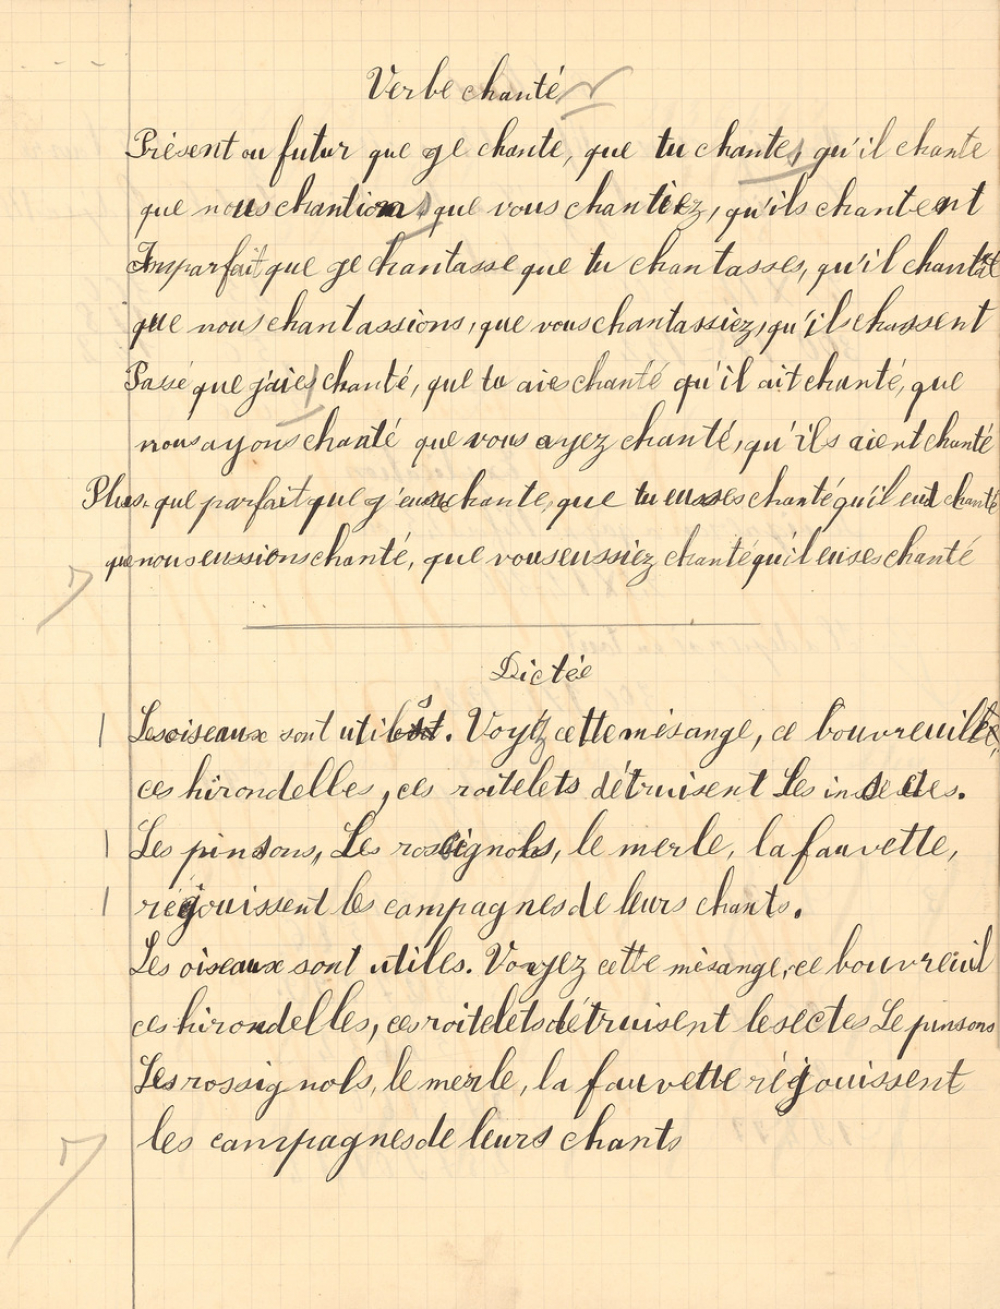 Verbe chanté
Présent ou futur que ge chante, que tu chantes, qu'il chante
que nous chantions, que vous chantiez, qu'ils chantent
Imparfait que ge chantasse que tu chantasses, qu'il chantât
que nous chantassions, que vous chantassiez, qu'ils chassent
Passé que j'aies chanté, que tu aies chanté qu'il ait chanté, que
nous ayons chanté que vous ayez chanté, qu'ils aient chanté
Plus-que parfait que g'eusse chante, que tu eusses chanté qu'il eut chanté
que nous eussions chanté, que vous eussiez chanté qu'il euses chanté
7
Dictée
Les oiseaux sont utiles. Voyez cette mésange, ce bouvreuil,
ces hirondelles, ces roitelets détruisent Les insectes.
Les pinsons, Les rossignols, le merle, la fauvette,
réjouissent les campagnes de leurs chants.
Les oiseaux sont utiles. Voyez cette mésange, ce bouvreuil
ces hirondelles, ces roitelets détruisent le sectes Le pinsons
Les rossignols, le merle, la fauvette réjouissent
les campagnes de leurs chants
7